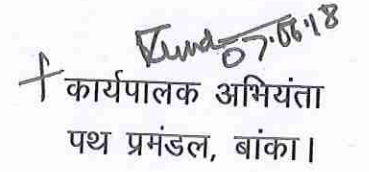 07.06.18
कार्यपालक अभियंता
पथ प्रमंडल, बांका।